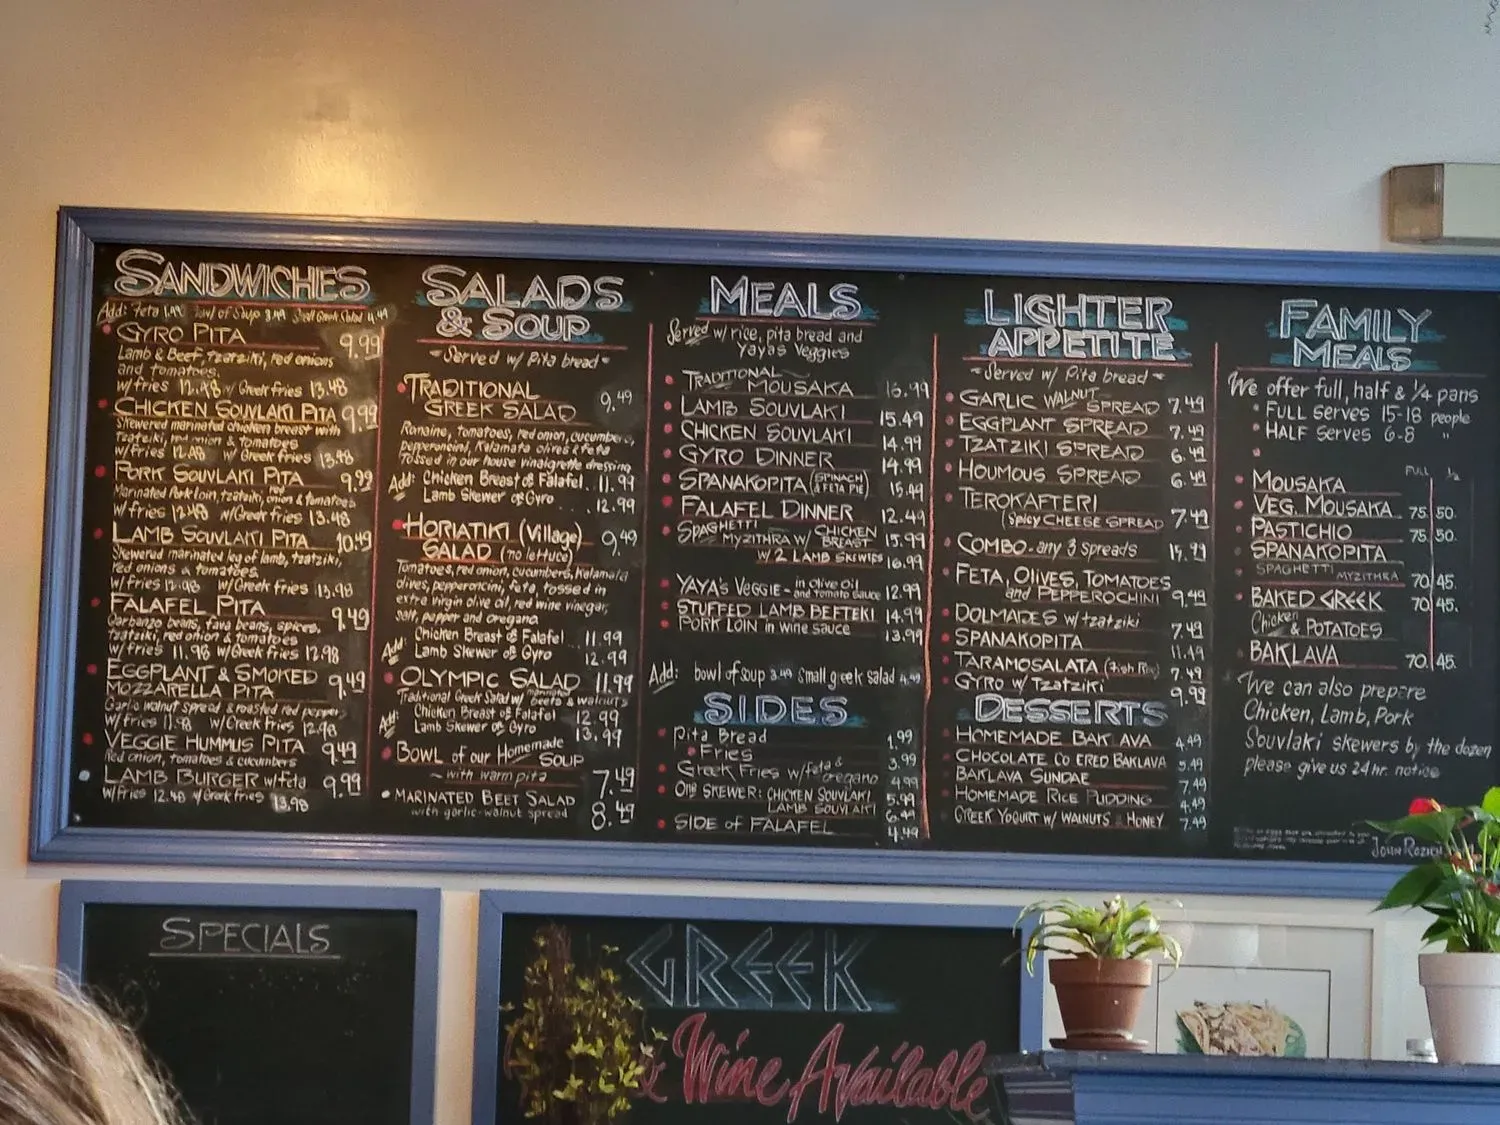 SANDWICHES
Add: Feta 1.49 Bowl of Soup 3.49 Small Greek Salad 4.49
GYRO PITA 9.99
Lamb & Beef, tzatziki, red onions
and tomatoes.
w/fries 12.48 w/ Greek fries 13.48
CHICKEN SOUVLAKI PITA 9.99
Skewered marinated chicken breast with
tzatziki, red onion & tomatoes
w/fries 12.48 w/ Greek fries 13.48
PORK SOUVLAKI PITA 9.99
Marinated Pork loin, tzatziki, red onion & tomatoes
w/fries 12.48 w/Greek fries 13.48
LAMB SOUVLAKI PITA 10.49
Skewered marinated leg of lamb, tzatziki,
red onions & tomatoes.
w/fries 12.98 w/Greek fries 13.98
FALAFEL PITA 9.49
Garbanzo beans, fava beans, spices,
tzatziki, red onion & tomatoes
w/fries 11.98 w/Greek fries 12.98
EGGPLANT & SMOKED
MOZZARELLA PITA 9.49
Garlic walnut spread & roasted red peppers
w/fries 11.98 w/Greek Fries 12.98
VEGGIE HUMMUS PITA 9.49
Red onion, tomatoes & cucumbers
LAMB BURGER w/feta 9.99
w/fries 12.48 w/Greek fries 13.98
SALADS
& SOUP
~ Served w/ Pita bread ~
TRADITIONAL
GREEK SALAD 9.49
Romaine, tomatoes, red onion, cucumbers,
pepperoncini, Kalamata olives & feta
tossed in our house vinaigrette dressing
Add: Chicken Breast or Falafel 11.99
Lamb Skewer or Gyro 12.99
HORIATIKI (Village)
SALAD (no lettuce) 9.49
Tomatoes, red onion, cucumbers, Kalamata
olives, pepperoncini, feta, tossed in
extra virgin olive oil, red wine vinegar,
salt, pepper and oregano.
Add: Chicken Breast or Falafel 11.99
Lamb Skewer or Gyro 12.99
OLYMPIC SALAD 11.99
Traditional Greek Salad w/ marinated beets & walnuts
Add: Chicken Breast or Falafel 12.99
Lamb Skewer or Gyro 13.99
BOWL of our Homemade
SOUP
~ with warm pita 7.49
MARINATED BEET SALAD
with garlic-walnut spread 8.49
MEALS
Served w/ rice, pita bread and
yaya's Veggies
TRADITIONAL
MOUSAKA 16.99
LAMB SOUVLAKI 15.49
CHICKEN SOUVLAKI 14.99
GYRO DINNER 14.99
SPANAKOPITA (SPINACH & FETA PIE) 15.49
FALAFEL DINNER 12.49
SPAGHETTI MYZITHRA w/ CHICKEN BREAST 15.99
w/ 2 LAMB SKEWERS 16.99
YAYA'S VEGGIE - in olive oil and tomato sauce 12.99
STUFFED LAMB BEFTEKI 14.99
PORK LOIN in wine sauce 13.99
Add: bowl of soup 3.49 Small greek salad 4.49
SIDES
Pita Bread 1.99
Fries 3.99
Greek Fries w/feta & oregano 4.99
One SKEWER: CHICKEN SOUVLAKI 5.99
LAMB SOUVLAKI 6.49
SIDE of FALAFEL 4.49
LIGHTER
APPETITE
~ Served w/ Pita bread ~
GARLIC WALNUT SPREAD 7.49
EGGPLANT SPREAD 7.49
TZATZIKI SPREAD 6.49
HOUMOUS SPREAD 6.49
TEROKAFTERI
(Spicy CHEESE SPREAD 7.49
COMBO - any 3 spreads
FETA, OLIVES, TOMATOES
and PEPPEROCHINI 9.49
DOLMADES w/ tzatziki 7.49
SPANAKOPITA 11.49
TARAMOSALATA (Fish Roe) 7.49
GYRO w/ TZatziki 9.99
DESSERTS
HOMEMADE BAKLAVA 4.49
CHOCOLATE CO ERED BAKLAVA 5.49
BAKLAVA SUNDAE 7.49
HOMEMADE RICE PUDDING 4.49
GREEK YOGURT w/ WALNUTS & HONEY 7.49
FAMILY
MEALS
We offer full, half & 1/4 pans
FULL serves 15-18 people
HALF serves 6-8 "
FULL 1/2
MOUSAKA
VEG. MOUSAKA 75 50.
PASTICHIO 75 50.
SPANAKOPITA
SPAGHETTI MYZITHRA 70 45.
BAKED GREEK 70 45.
Chicken & POTATOES
BAKLAVA 70 45.
We can also prepare
Chicken, Lamb, Pork
Souvlaki skewers by the dozen
please give us 24 hr. notice
SPECIALS
GREEK
Wine Available